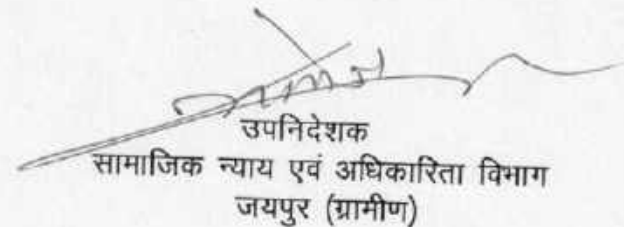 उपनिदेशक
सामाजिक न्याय एवं अधिकारिता विभाग
जयपुर (ग्रामीण)